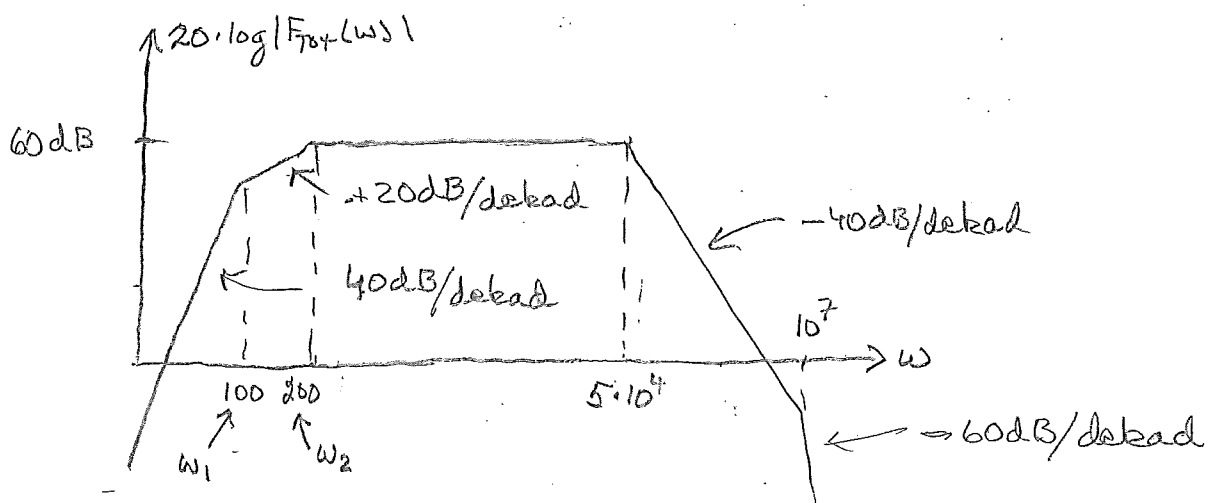 20·log|F_Tot(ω)|
60dB
+20dB/dekad
-40dB/dekad
40dB/dekad
10⁷
ω
100 200
5·10⁴
-60dB/dekad
ω₁ ω₂